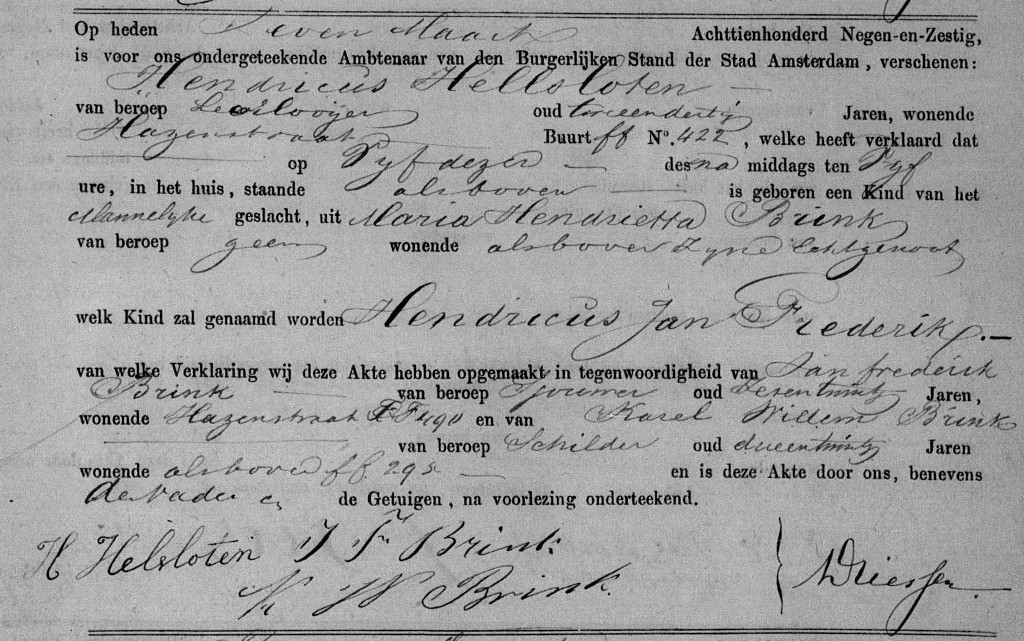 Op heden Zeven Maart Achttienhonderd Negen-en-Zestig,
is voor ons ondergeteekende Ambtenaar van den Burgerlijken Stand der Stad Amsterdam, verschenen:
Hendricus Hellsloten
van beroep Leerlooyer oud tweeendertig Jaren, wonende
Hazenstraat Buurt ff No. 422, welke heeft verklaard dat
op Vyf dezer des na middags ten Vyf
ure, in het huis, staande als boven is geboren een Kind van het
Mannelyke geslacht, uit Maria Hendrietta Brink
van beroep geen wonende als boven Zyne Echtgenoot
welk Kind zal genaamd worden Hendricus Jan Frederik.
van welke Verklaring wij deze Akte hebben opgemaakt in tegenwoordigheid van Jan frederik
Brink van beroep Sjouwer oud Jaren,
wonende Hazenstraat FF 490 en van Karel Willem Brink
van beroep Schilder oud Jaren
wonende als boven ff. 295 en is deze Akte door ons, benevens
de Vader en de Getuigen, na voorlezing onderteekend.
H Helsloten J Fr Brink
K W Brink